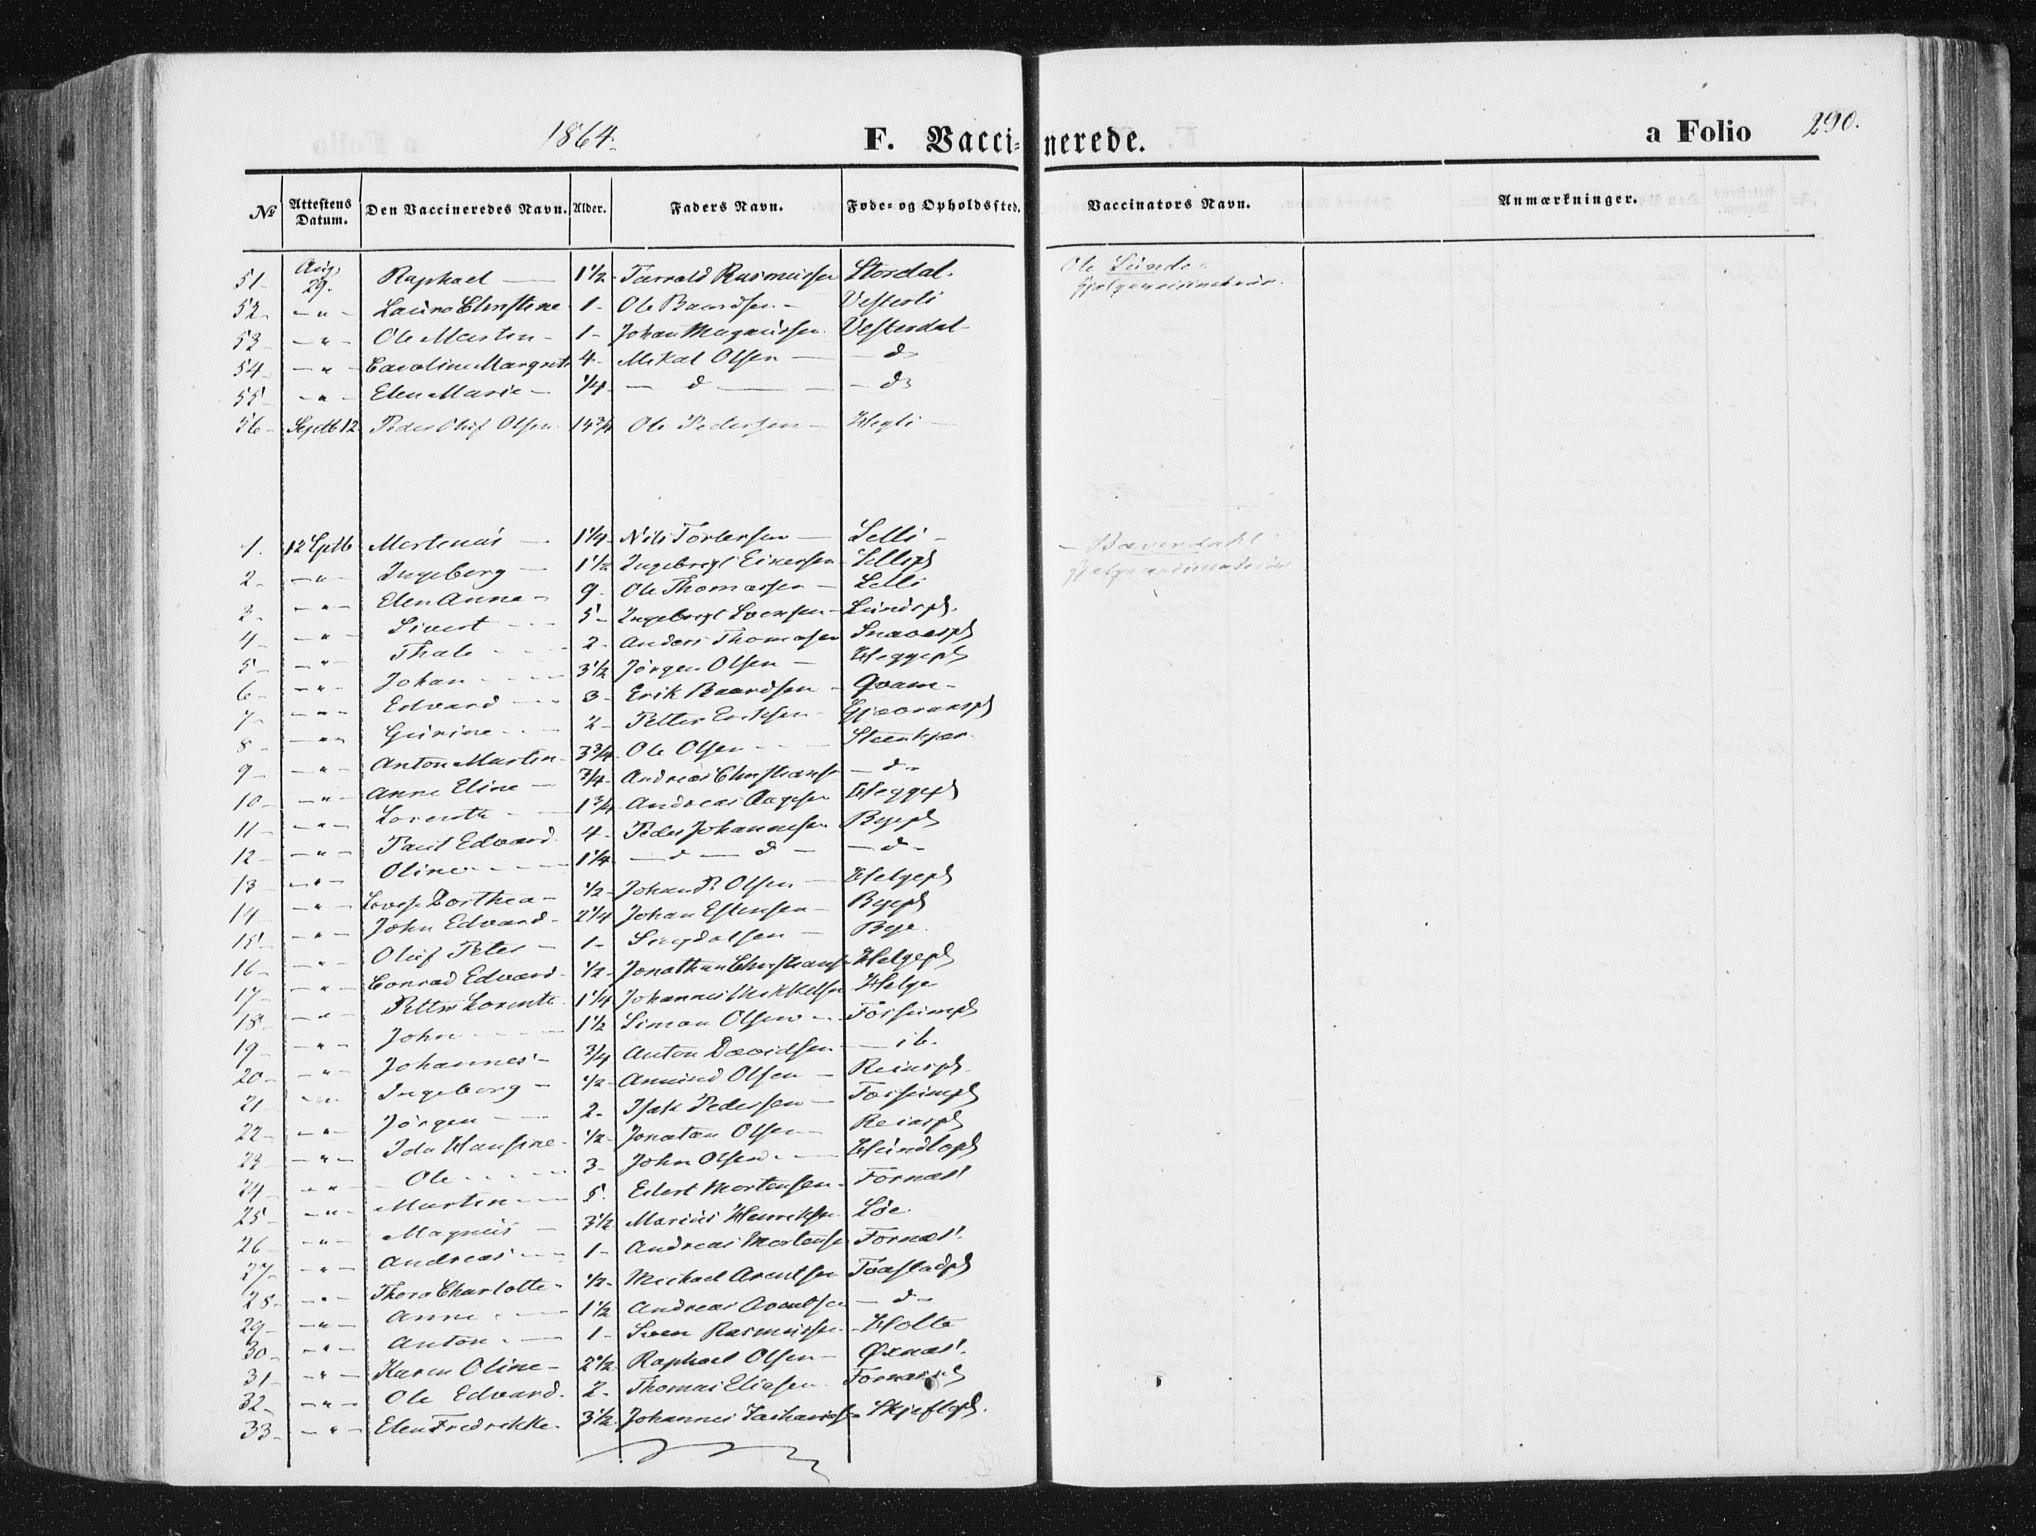 1864.
F. Vaccinerede.
a Folio 290.
No Attestens Datum. Den Vaccineredes Navn. Alder. Faders Navn. Føde- og Opholdssted. Vaccinators Navn. Anmærkninger.
51. Aug. 29. Raphael — 1 1/2 - Rasmussen Stordal. Ole Sunde
52. — " — Laura Christine 1 - Ole Baardsen - Vesterli
53 — " — Ole Martin - 1 - Johan Magnussen Vesterdal -
54. — " — Caroline Margrete 4 - Mikal Olsen — d
55 — " — Elen Marie - 1/4 - — d — — d
56 - Septb 12 Peder Oluf Olsen 14 3/4 Ole Pedersen - Hegli —
1. 12 Septb Martinus — 1 1/4 - Nils Torbersen — Selli - — Bævendahl
2 - — " — Ingeberg — 1 1/2 Ingebregt Sellipl
2 - — " — Elen Anna - 9 - Ole Thomassen — Selli
4 - — " — Sivert 5 - Ingebregt Svensen - Lundspl.
5 - — " — Thale 2 - Anders Thomasen
6 - — " — Johan 3 1/2 Jørgen Olsen — Heggepl
7 - — " — Edvard 3 - Erik Baardsen - Qvam -
8 - — " — Gurine 2 - Petter Eriksen - Gjævranspl
9 - — " — Anton Martin - 3 3/4 Ole Olsen Steenkjær
10 - — " — Anne Eline — 3/4 - Andreas Christians — d -
11 - — " — Lorents 1 3/4 Andreas Aagesen Heggepl
12 - — " — Paul Edvard 4 - Peder Johannesen Byepl
13 - — " — Oline 1 1/4 — d — d — — d -
14 - — " — Lovise Dorthea - 1/2 - Johan P. Olsen — Helgepl
15 - — " — John Edvard - 2 1/4 Johan Estensen - Byepl
16 - — " — Oluf Peter — 1 - — Bye.
17 - — " — Conrad Edvard - 1/2 - Jonathan Christians Helgepl
18 - — " — Petter Lorents 1 1/4 Johannes Mikkelsen Helge
19 - — " — John 1 1/2 Simon Olsen Fossumpl
20 - — " — Johannes - 3/4 Anton Davidsen — ib.
21 — " — Ingeborg - 1/2 - Amund Olsen — Reinspl.
22 - — " — Jørgen — 2 - Isak Pedersen — Fossumpl
23 - — " — Ida Hansine - 1/2 - Jonatan Olsen — Reinspl
24 - — " — Ole 3 - John Olsen Hundlopl
25 - — " — Martin 5. Edert Mortensen - Fornæs
26 - — " — Magnus — 3 1/2 Marius Henriksen Løe
27 - — " — Andreas 1 - Andreas Mortensen Fornæs.
28 - — " — Thora Charlotte - 1/2 - Michael Arentsen
29 - — " — Anne 1 1/2 Andreas Arentsen — d -
30 - — " — Anton 1 - Sven Rasmussen - Holte
31 - — " — Karen Oline - 2 1/2 Raphael Olsen — Øxnæs.
32 - — " — Ole Edvard. 2 - Thomas Eliasen Fornæspl
33 - — " — Elen Fredrikke - 3 1/2 Johannes Skjeftepl.